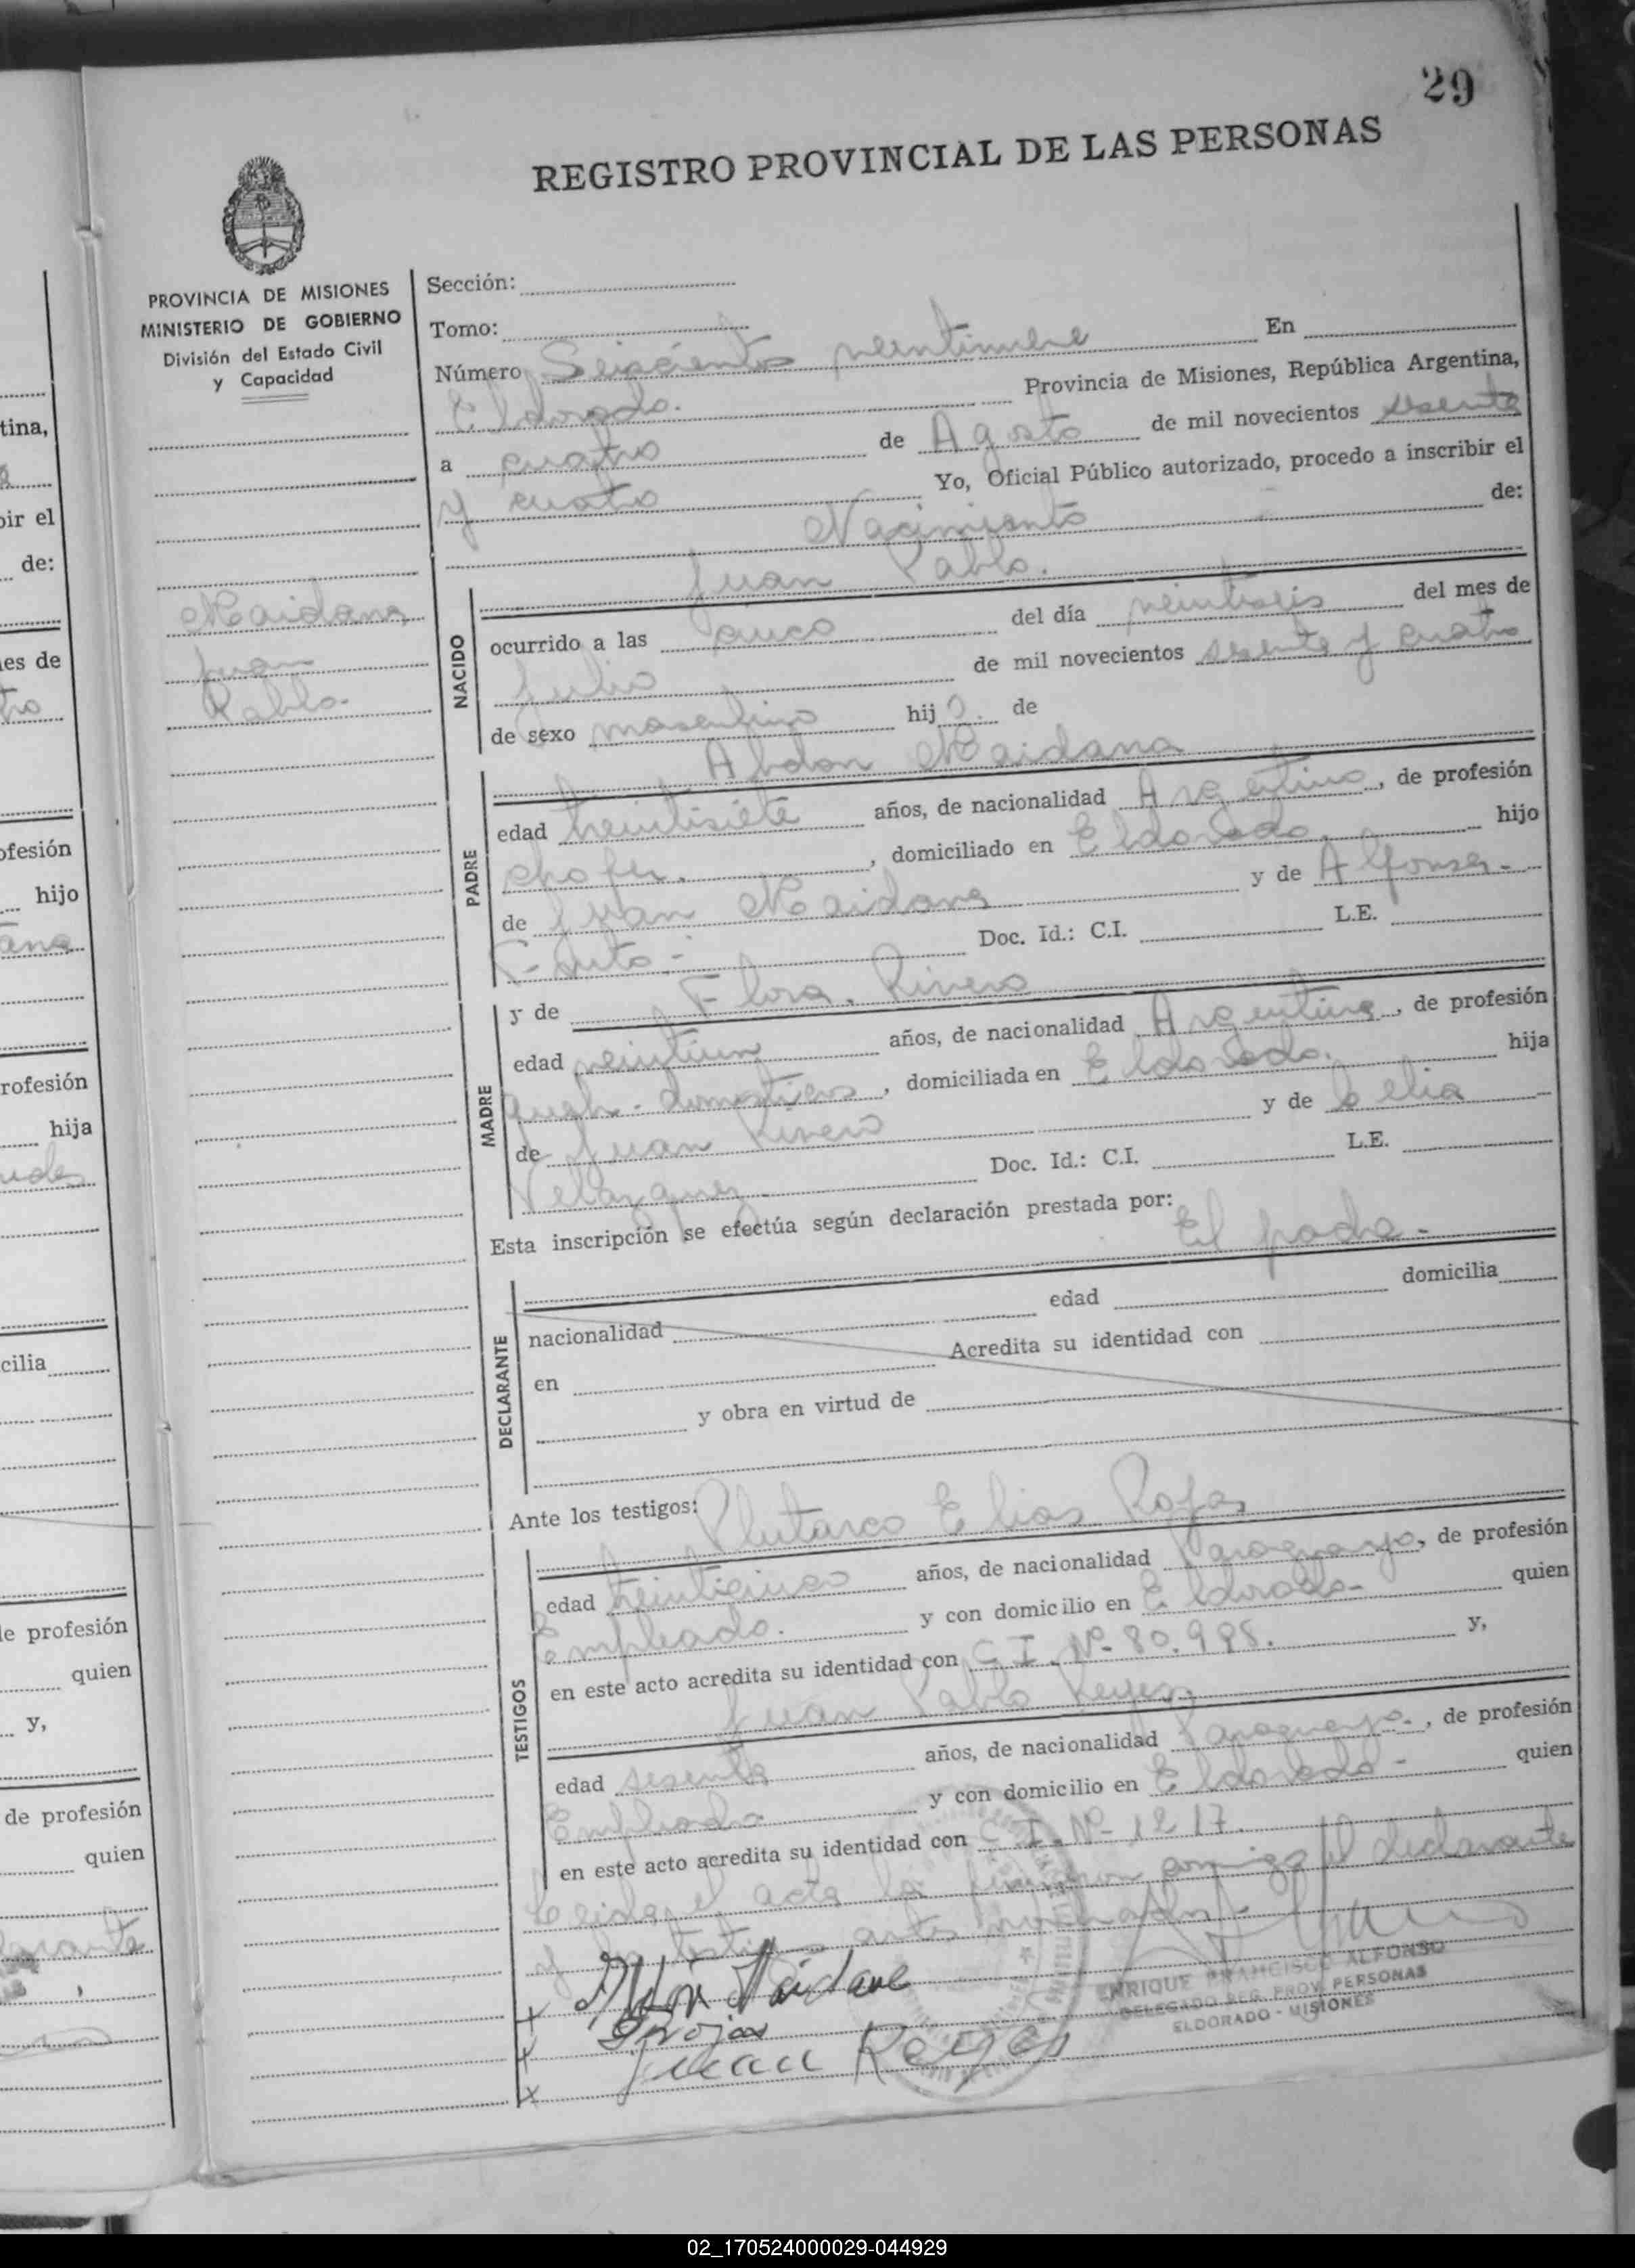 29
REGISTRO PROVINCIAL DE LAS PERSONAS
PROVINCIA DE MISIONES
MINISTERIO DE GOBIERNO
División del Estado Civil
y Capacidad
Maidana
Juan
Pablo.
Sección:
Tomo:
Número Seiscientos veintinueve En
Eldorado. Provincia de Misiones, República Argentina,
a cuatro de Agosto de mil novecientos sesenta
y cuatro Yo, Oficial Público autorizado, procedo a inscribir el
Nacimiento de:
Juan Pablo.
NACIDO
ocurrido a las cinco del día veintiseis del mes de
Julio de mil novecientos sesenta y cuatro
de sexo masculino hijo. de
Abdon Maidana
PADRE
edad treintisiete años, de nacionalidad Argentino, de profesión
chofer. , domiciliado en Eldorado. hijo
de Juan Maidana y de Alfonsa-
Doc. Id.: C.I. L.E.
y de Flora. Rivero
MADRE
edad veintiun años, de nacionalidad Argentina, de profesión
queh. domesticos, domiciliada en Eldorado. hija
de Juan Rivero y de Celia
Velazquez. Doc. Id.: C.I. L.E.
Esta inscripción se efectúa según declaración prestada por:
El padre-
DECLARANTE
nacionalidad edad domicilia
en Acredita su identidad con
y obra en virtud de
Ante los testigos:
Plutarco Elias Rojas
TESTIGOS
edad treinticinco años, de nacionalidad Paraguayo, de profesión
Empleado. y con domicilio en Eldorado- quien
en este acto acredita su identidad con C.I. Nº- 80.985. y,
Juan Pablo Reyes.
edad sesenta años, de nacionalidad Paraguayo-, de profesión
Empleado y con domicilio en Eldorado- quien
en este acto acredita su identidad con C.I. Nº- 1217.
el acta la firmaron conmigo el declarante
y los testigos antes nombrados-
x Abdón Maidana
x Rojas
x Juan Reyes
ENRIQUE FRANCISCO ALFONSO
DELEGADO REG. PROV. PERSONAS
ELDORADO - MISIONES
tina,
bir el
de:
es de
ofesión
hijo
rofesión
hija
cilia
de profesión
quien
y,
de profesión
quien
02_170524000029-044929